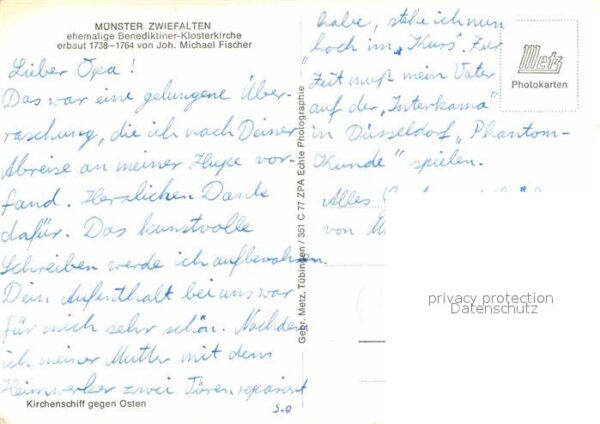 MÜNSTER ZWIEFALTEN
ehemalige Benediktiner-Klosterkirche
erbaut 1738–1764 von Joh. Michael Fischer
Lieber Opa!
Das war eine gelungene Über-
raschung, die ich nach Deiner
Abreise an meiner Hupe vor-
fand. Herzlichen Dank
dafür. Das kunstvolle
Schreiben werde ich aufbewahren.
Dein Aufenthalt bei uns war
für mich sehr schön. Nachdem
ich meiner Mutter mit dem
Heimwerker zwei Türen repariert
Kirchenschiff gegen Osten
Gebr. Metz, Tübingen / 351 C 77 ZPA Echte Photographie
habe, stehe ich nun
"hoch im Kurs". Zur
Zeit muß mein Vater
auf der "Interkama"
in Düsseldorf "Phantom-
Kunde" spielen.
Alles
von
Metz
Photokarten
privacy protection
Datenschutz